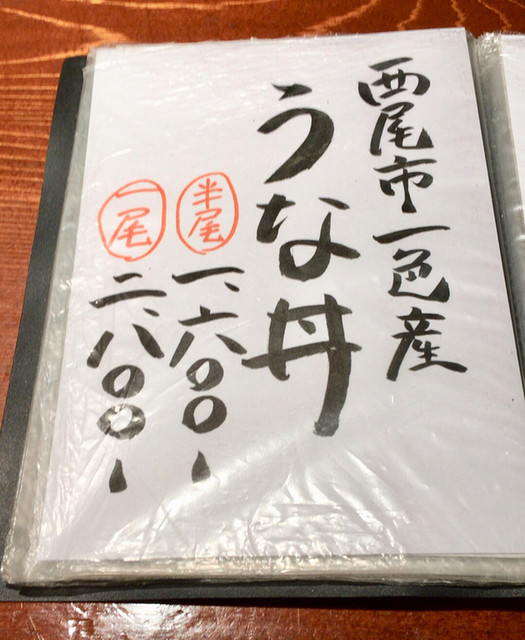 西尾市一色産
うな丼
半尾 一、六〇〇、
一尾 二、八〇〇、